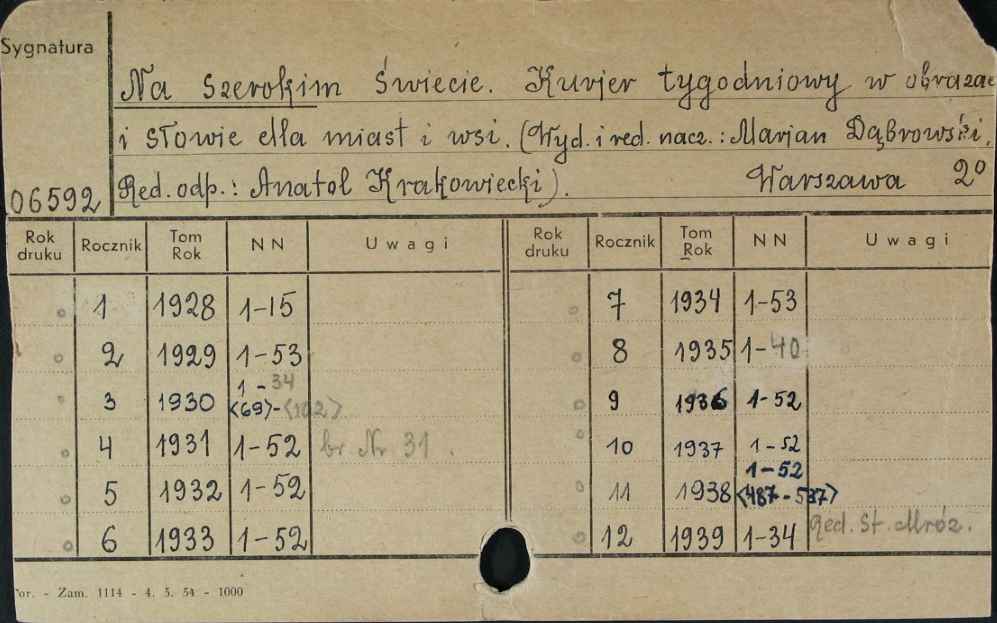 Sygnatura
Na szerokim świecie. Kurjer tygodniowy w obrazac
i słowie dla miast i wsi. (Wyd. i red. nacz.: Marjan Dąbrowski,
06592 Red. odp.: Anatol Krakowiecki). Warszawa 2°
Rok druku Rocznik Tom Rok NN Uwagi Rok druku Rocznik Tom Rok NN Uwagi
1 1928 1-15 7 1934 1-53
2 1929 1-53 8 1935 1-40
3 1930 1-34 <69>-<102> 9 1936 1-52
4 1931 1-52 br Nr 31. 10 1937 1-52
5 1932 1-52 11 1938 1-52 <487-537>
6 1933 1-52 12 1939 1-34 Red. St. Mróz.
Tor. - Zam. 1114 - 4. 5. 54 - 1000